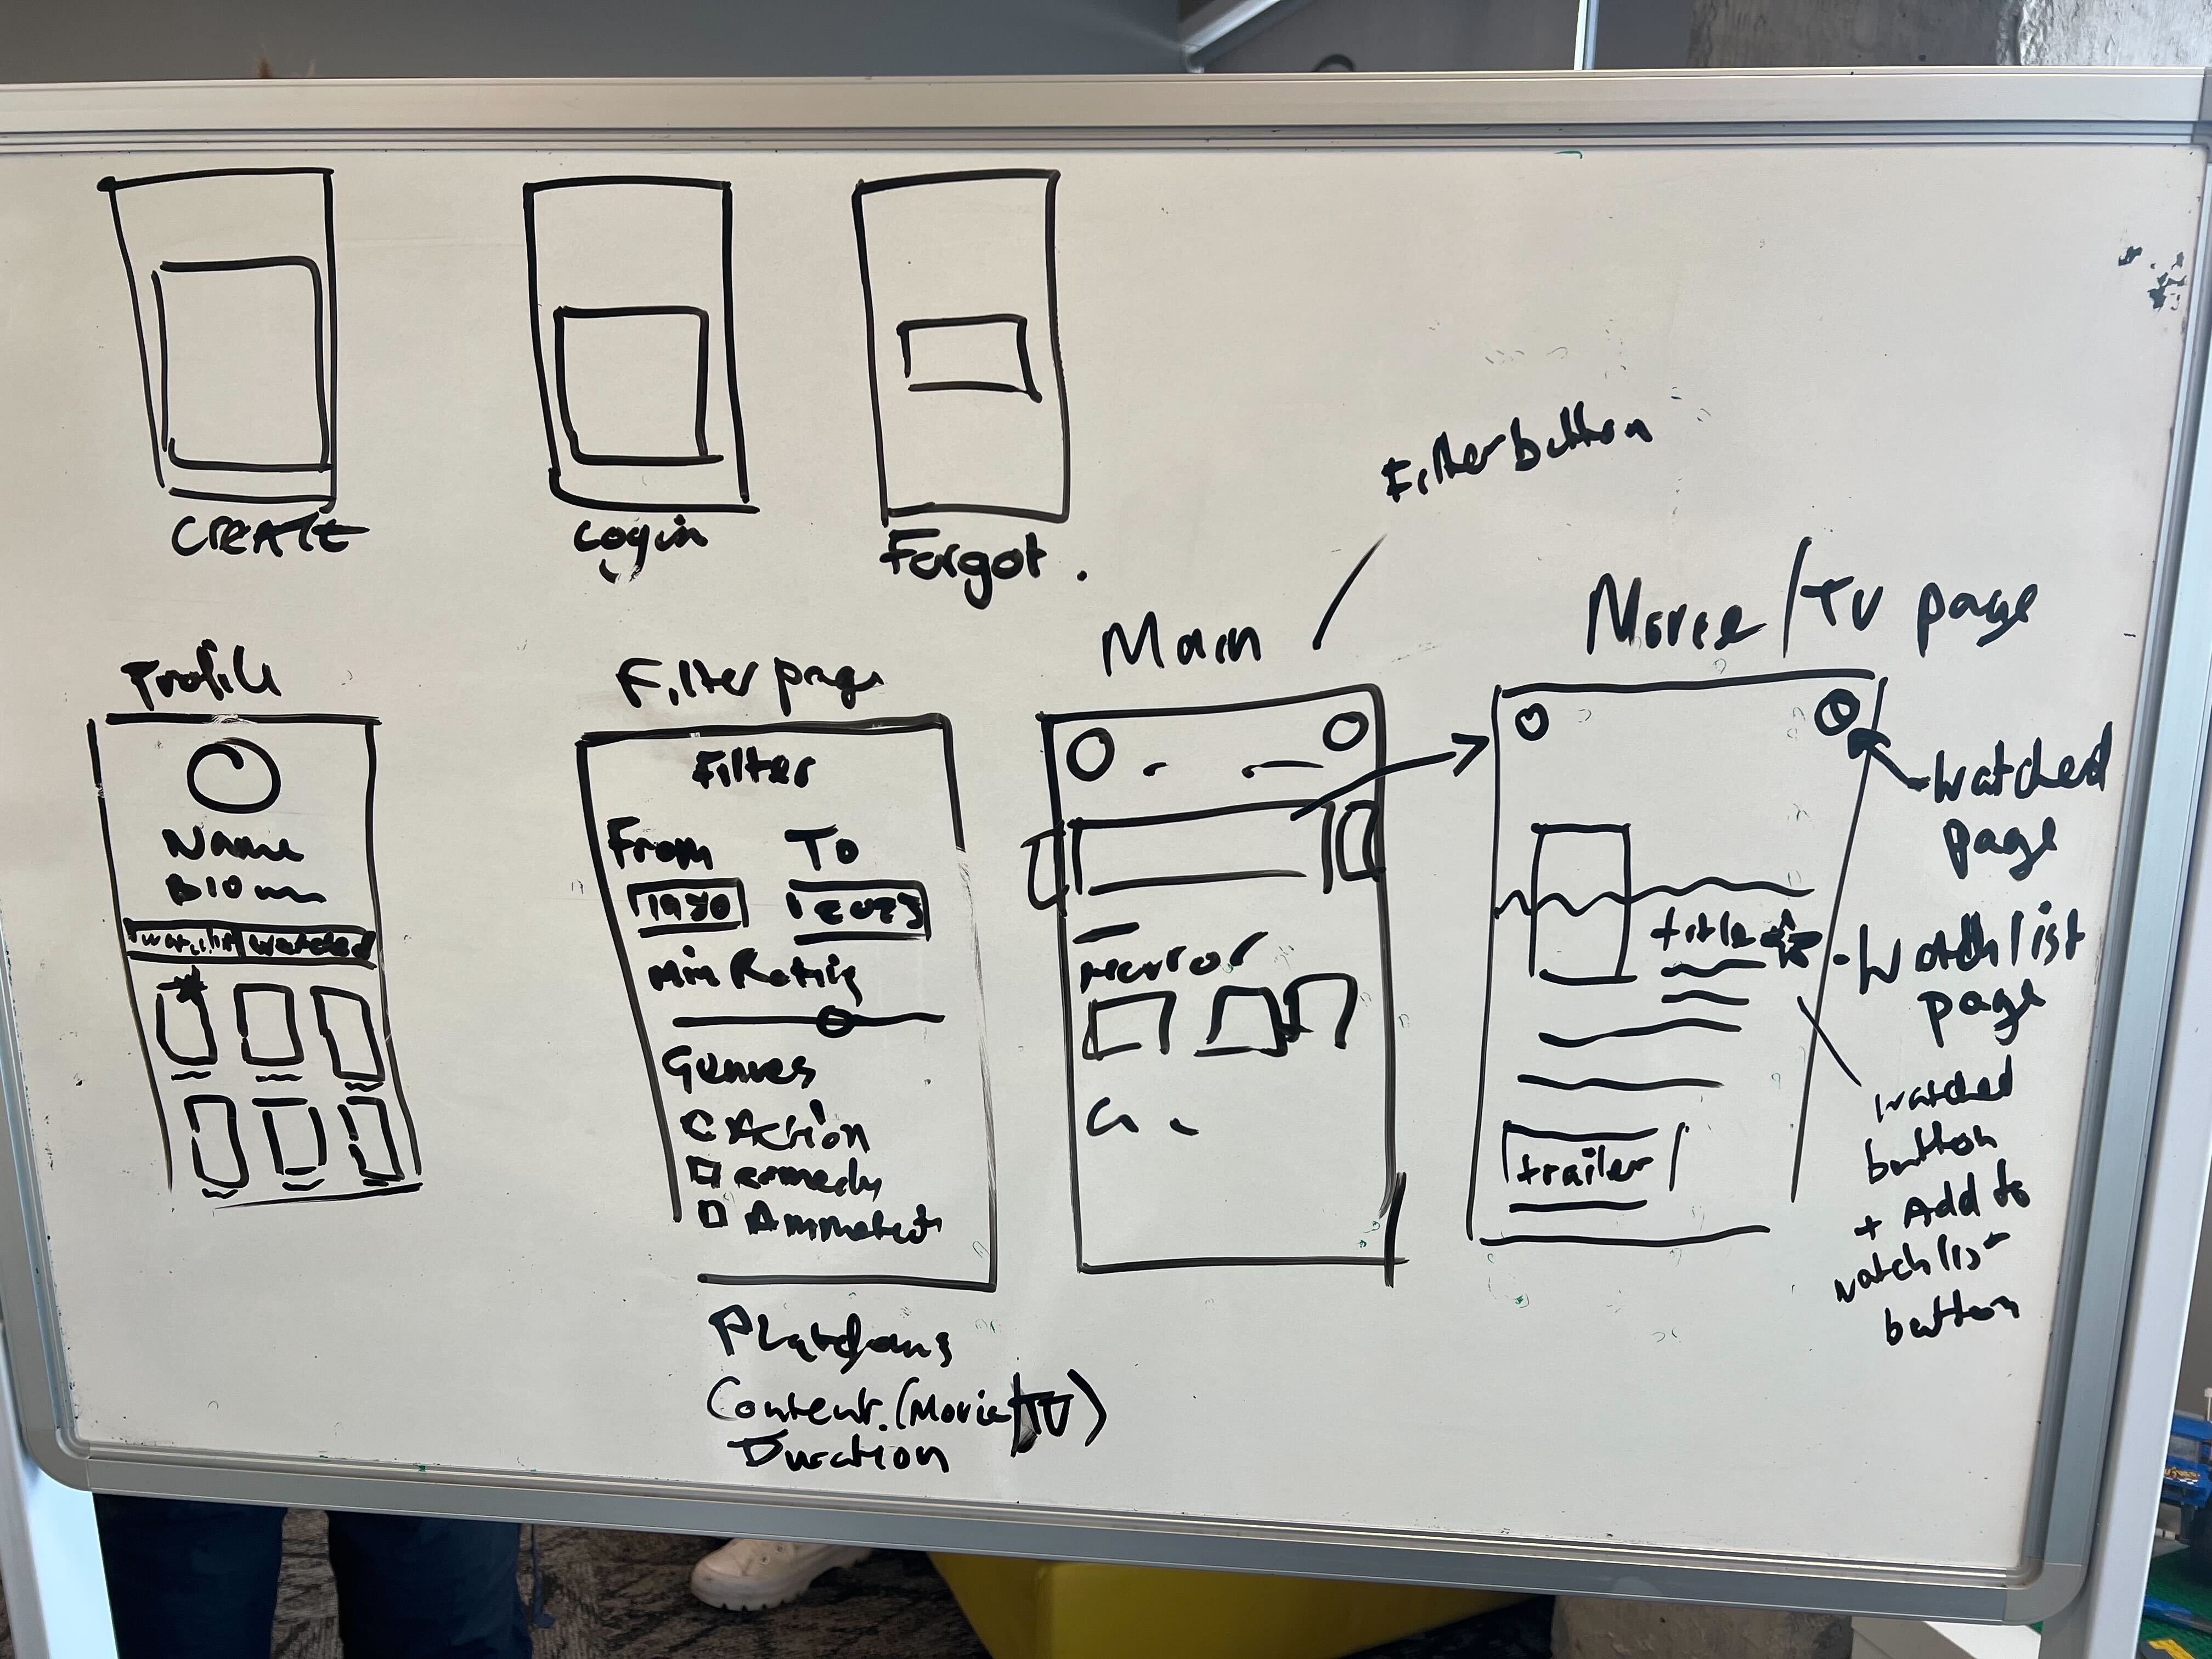 CREATE
Login
Forgot.
Filter button
Profile
Name
Bio
watched
Filter page
Filter
From To
1980 2023
Min Rating
Genres
Action
comedy
Animated
Platforms
Content.(Movie/TV)
Duration
Main
Horror
Movie/TV page
title
trailer
watched
page
Watchlist
page
watched
button
+ Add to
watchlist
button